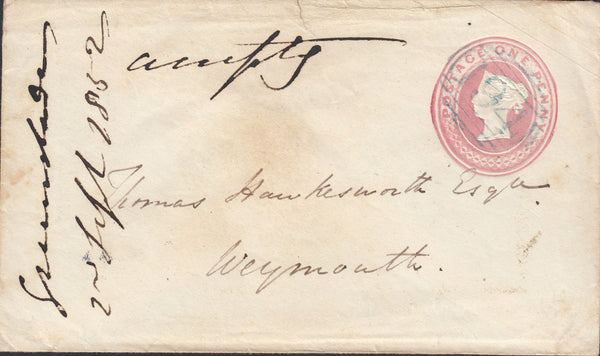 2nd Sept 1852
POSTAGE ONE PENNY
Thomas Hawkesworth Esqre
Weymouth.